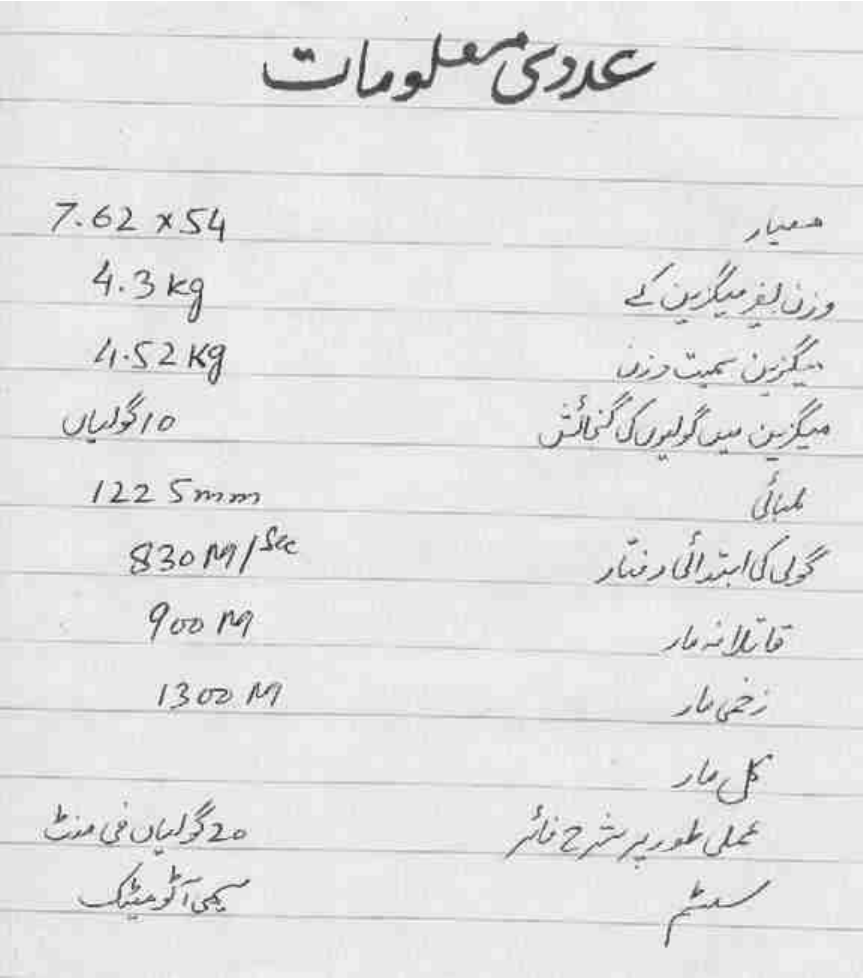 عددی معلومات
معیار 7.62 x 54
وزن بغیر میگزین کے 4.3 kg
میگزین سمیت وزن 4.52 kg
میگزین میں گولیوں کی گنجائش 10 گولیاں
لمبائی 1225 mm
گولی کی ابتدائی رفتار 830 M/Sec
قاتلانہ مار 900 M
زخمی مار 1300 M
کل مار
عملی طور پر شرح فائر 20 گولیاں فی منٹ
سسٹم سیمی آٹومیٹک